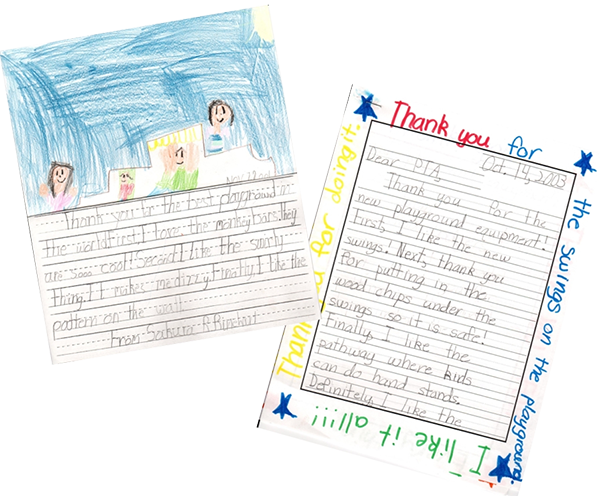 Thank you for the best playground in
the world! First I love the monkey bars. They
are sooo cool! Second I like the spinny
thing. It makes me dizzy. Finally I like the
pattern on the wall.
From
Thank you for
the swings on the playground.
I like it all!!!!
Thank you for doing it.
Dear PTA, Oct. 14, 2003
Thank you for the
new playground equipment!
First, I like the new
swings! Next, thank you
for putting in the
wood chips under the
swings so it is safe.
Finally, I like the
pathway where kids
can do hand stands.
Definitely, I like the